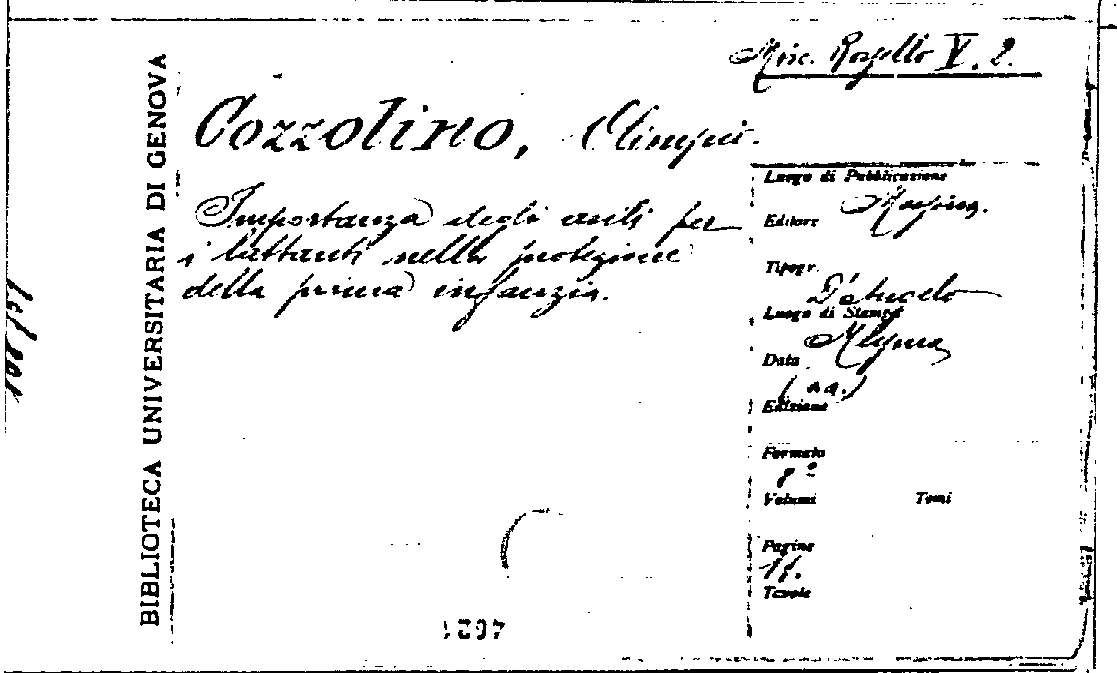 BIBLIOTECA UNIVERSITARIA DI GENOVA
Misc. V. 2.
Cozzolino, Olimpio.
Importanza degli asili per
i lattanti nella protezione
della prima infanzia.
Luogo di Pubblicazione
Messina.
Editore
Tipogr.
D'Angelo
Luogo di Stampa
Messina
Data
(s.a.)
Edizione
Formato
8º
Volumi Tomi
Pagine
Tavole